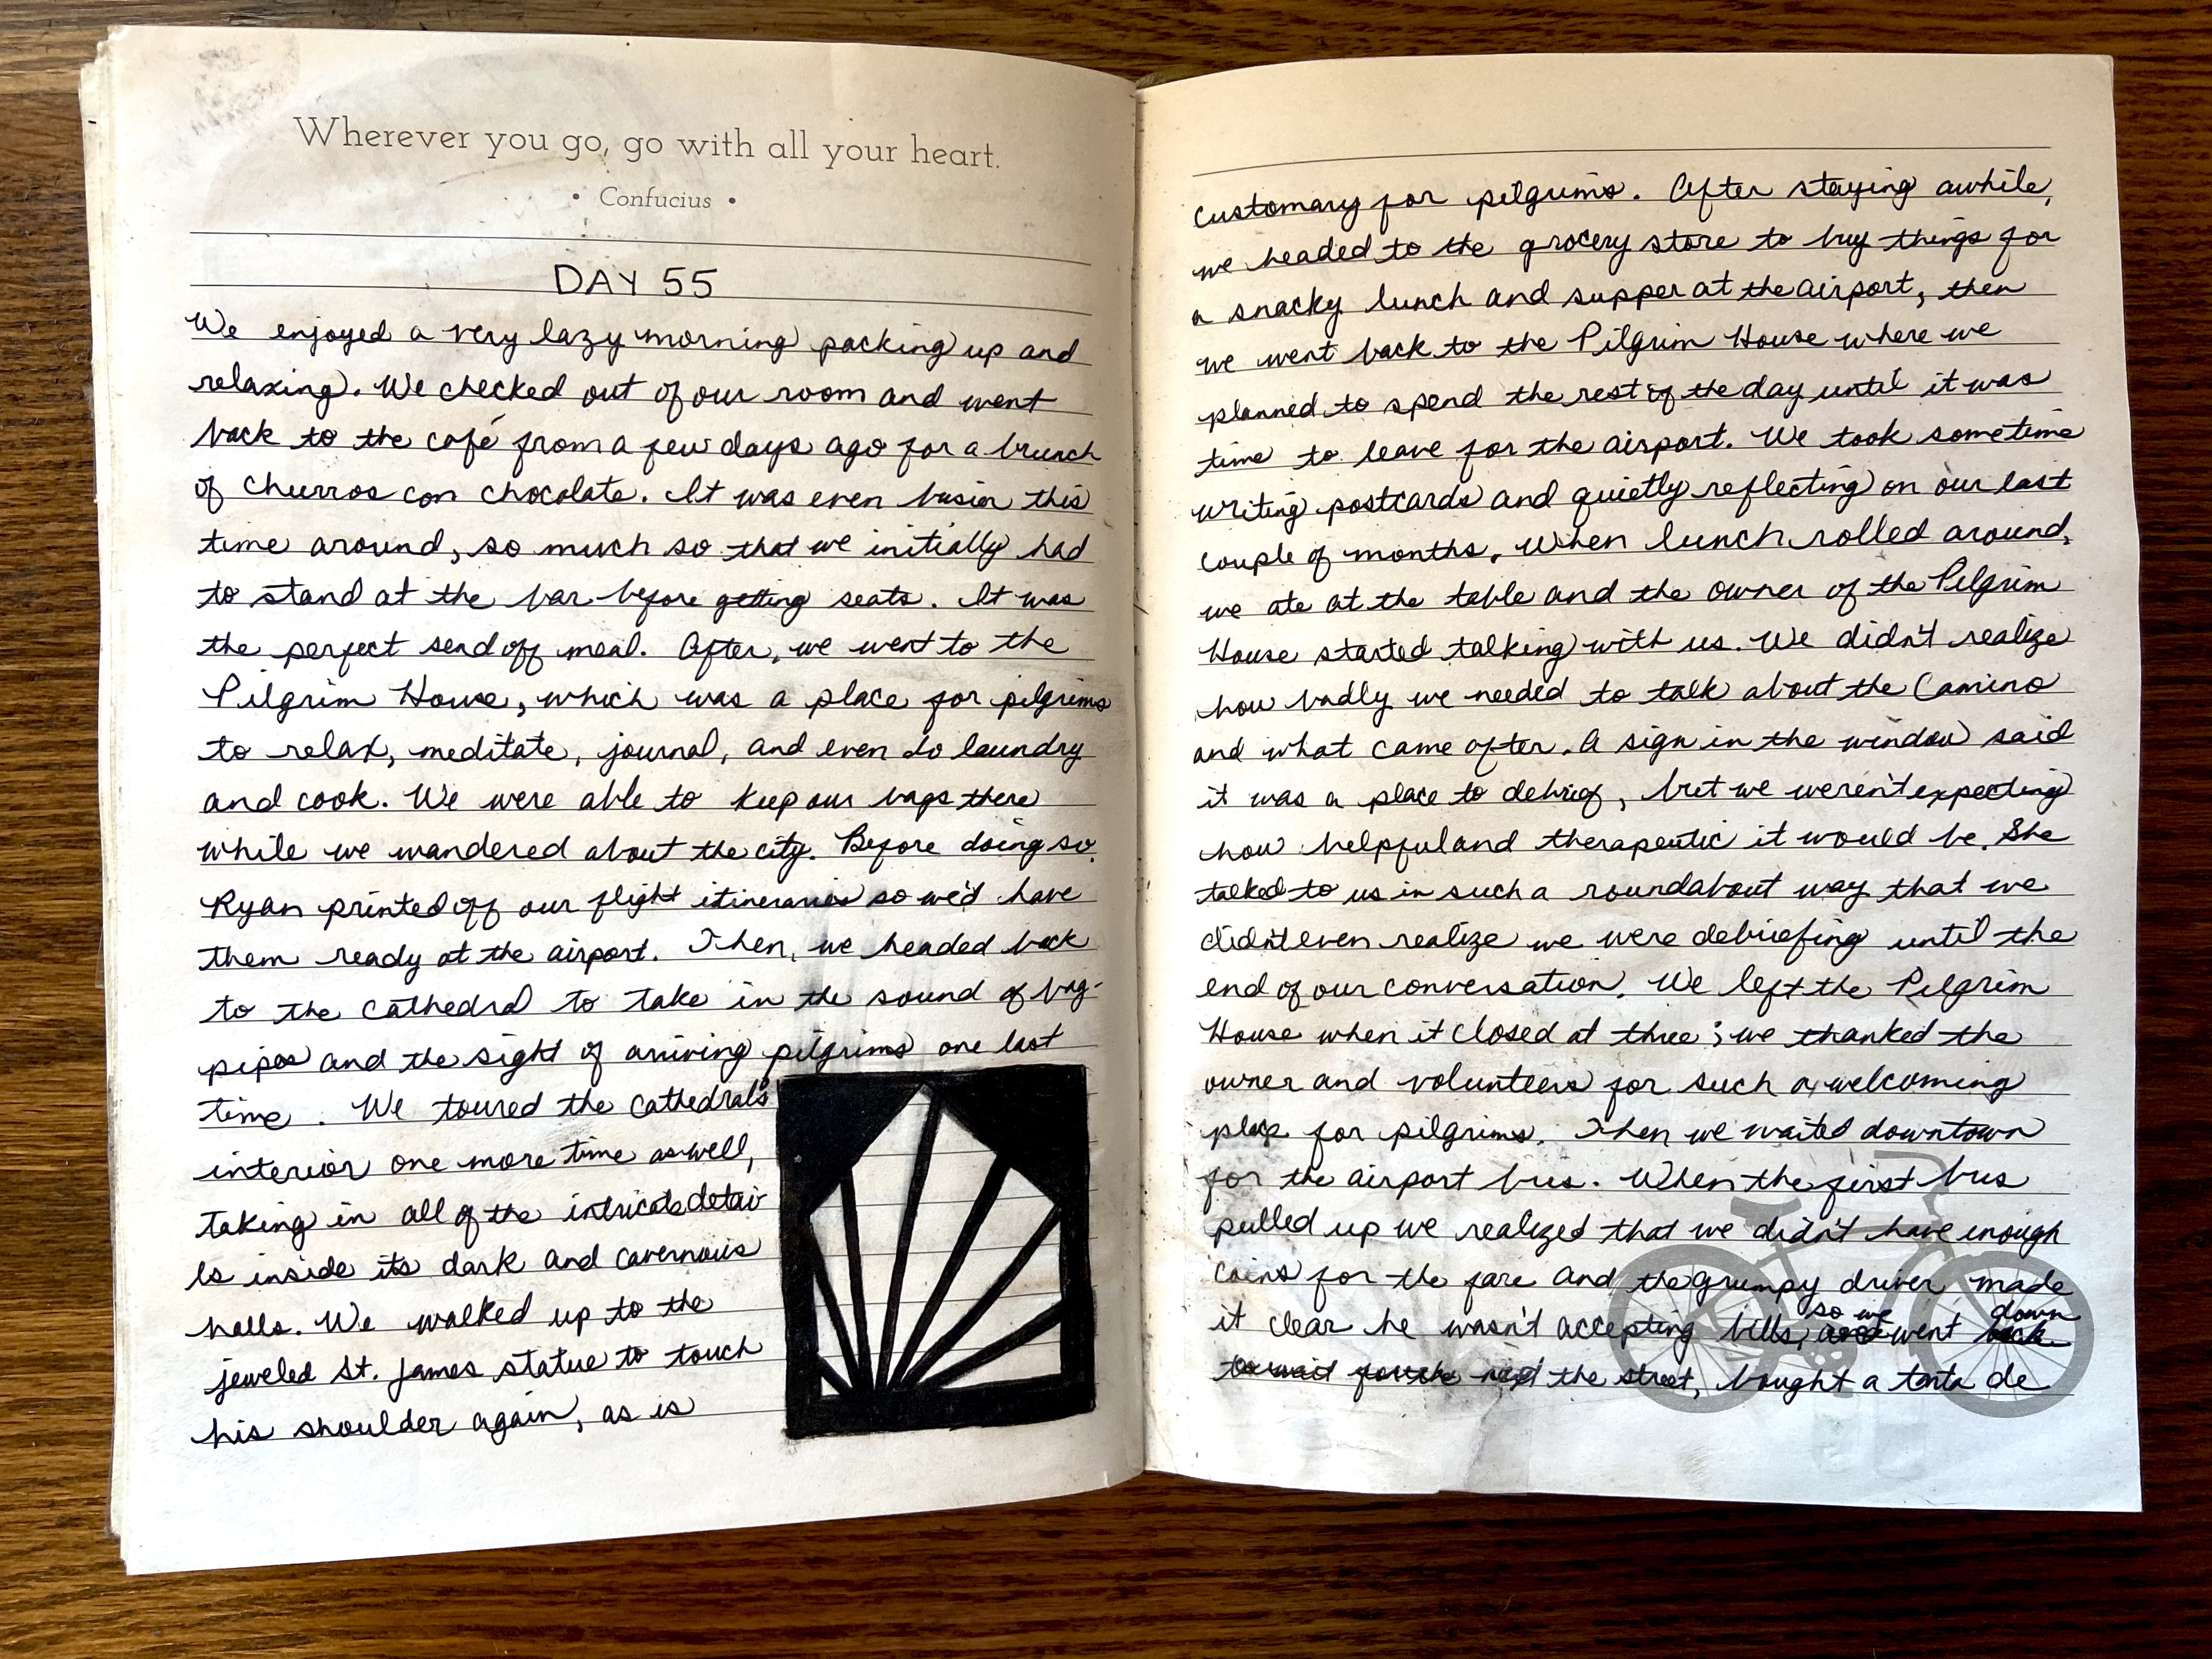 Wherever you go, go with all your heart.
• Confucius •
DAY 55
We enjoyed a very lazy morning packing up and
relaxing. We checked out of our room and went
back to the café from a few days ago for a brunch
of churros con chocolate. It was even busier this
time around, so much so that we initially had
to stand at the bar before getting seats. It was
the perfect send off meal. After, we went to the
Pilgrim House, which was a place for pilgrims
to relax, meditate, journal, and even do laundry
and cook. We were able to keep our bags there
while we wandered about the city. Before doing so,
Ryan printed off our flight itineraries so we'd have
them ready at the airport. Then, we headed back
to the cathedral to take in the sound of bag-
pipes and the sight of arriving pilgrims one last
time. We toured the cathedral's
interior one more time as well,
taking in all of the intricate detai
ls inside its dark and cavernous
halls. We walked up to the
jeweled St. James statue to touch
his shoulder again, as is
customary for pilgrims. After staying awhile,
we headed to the grocery store to buy things for
a snacky lunch and supper at the airport, then
we went back to the Pilgrim House where we
planned to spend the rest of the day until it was
time to leave for the airport. We took sometime
writing postcards and quietly reflecting on our last
couple of months. When lunch rolled around,
we ate at the table and the owner of the Pilgrim
House started talking with us. We didn't realize
how badly we needed to talk about the Camino
and what came after. A sign in the window said
it was a place to debrief, but we weren't expecting
how helpful and therapeutic it would be. She
talked to us in such a roundabout way that we
didn't even realize we were debriefing until the
end of our conversation. We left the Pilgrim
House when it closed at three; we thanked the
owner and volunteers for such a welcoming
place for pilgrims. Then we waited downtown
for the airport bus. When the first bus
pulled up we realized that we didn't have enough
coins for the fare and the grumpy driver made
it clear he wasn't accepting bills, so we went down
to wait for the next the street, bought a tarta de